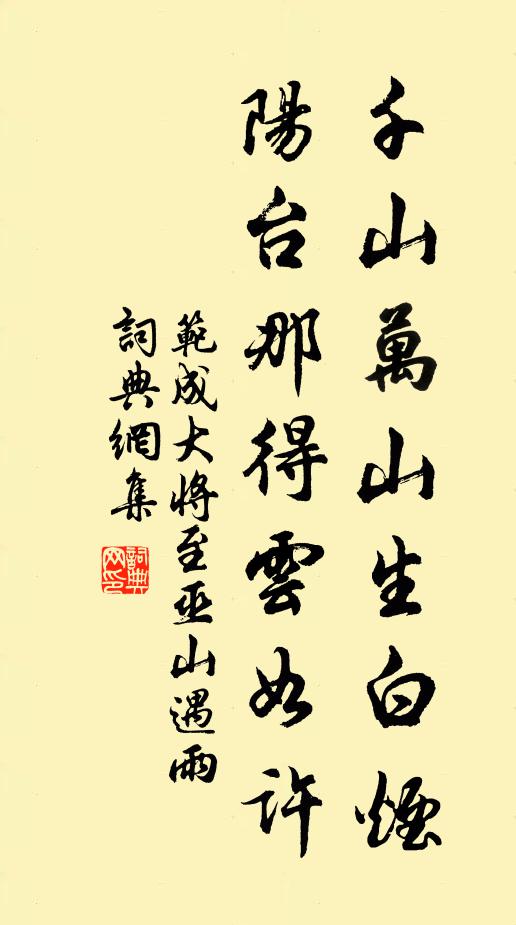 千山萬山生白煙
陽台那得雲如許
範成大將至巫山遇雨
詞典網集
詞典网印